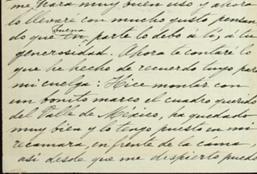 me hará muy buen uso, y ahora
lo llevaré con mucho gusto pensan
do que buena parte lo debo á tí, á tu
generosidad. Ahora te contaré lo
que he hecho de recuerdo tuyo para
mi cuelga: Hice montar con
un bonito marco el cuadro querido
del Valle de México, ha quedado
muy bien y lo tengo puesto en mi
recámara, en frente de la cama,
así desde que me despierto puedo